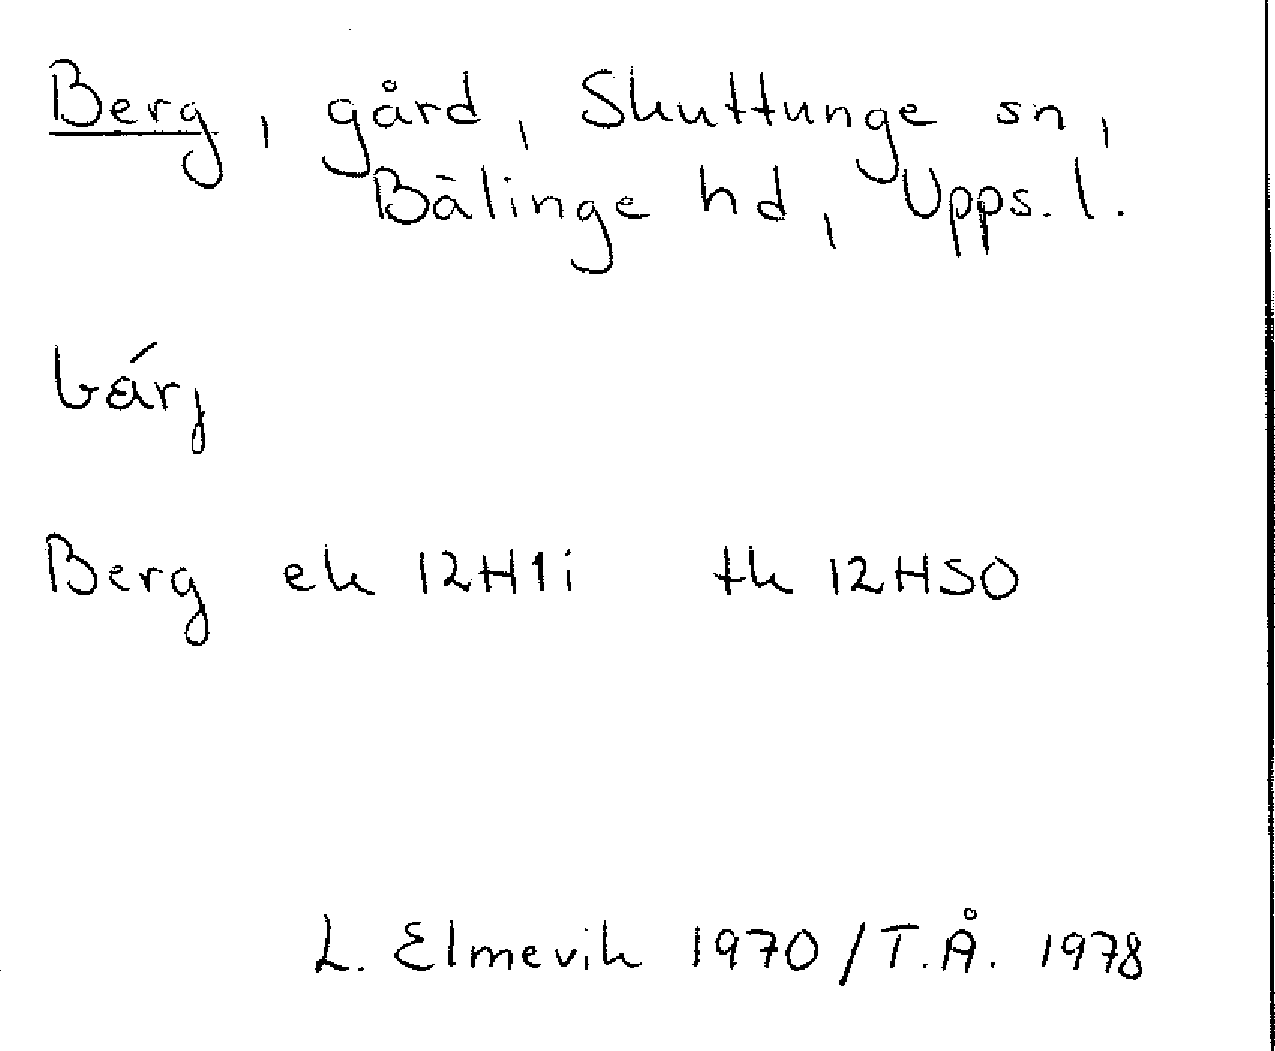 Berg, gård, Skuttunge sn,
Bälinge hd, Upps. l.
bárj
Berg ek 12H1i tk 12HSO
L. Elmevik 1970/T.Å. 1978